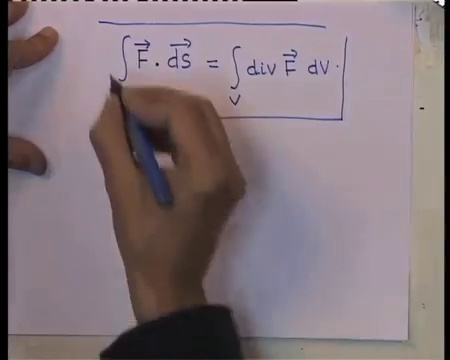 ∫ F⃗ · dS⃗ = ∫_V div F⃗ dV.